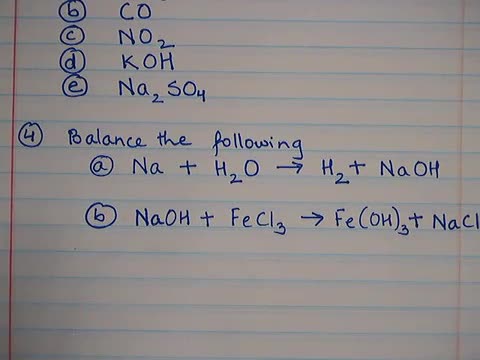 ⓑ CO
ⓒ NO₂
ⓓ KOH
ⓔ Na₂SO₄
④ Balance the following
ⓐ Na + H₂O → H₂ + NaOH
ⓑ NaOH + FeCl₃ → Fe(OH)₃ + NaCl